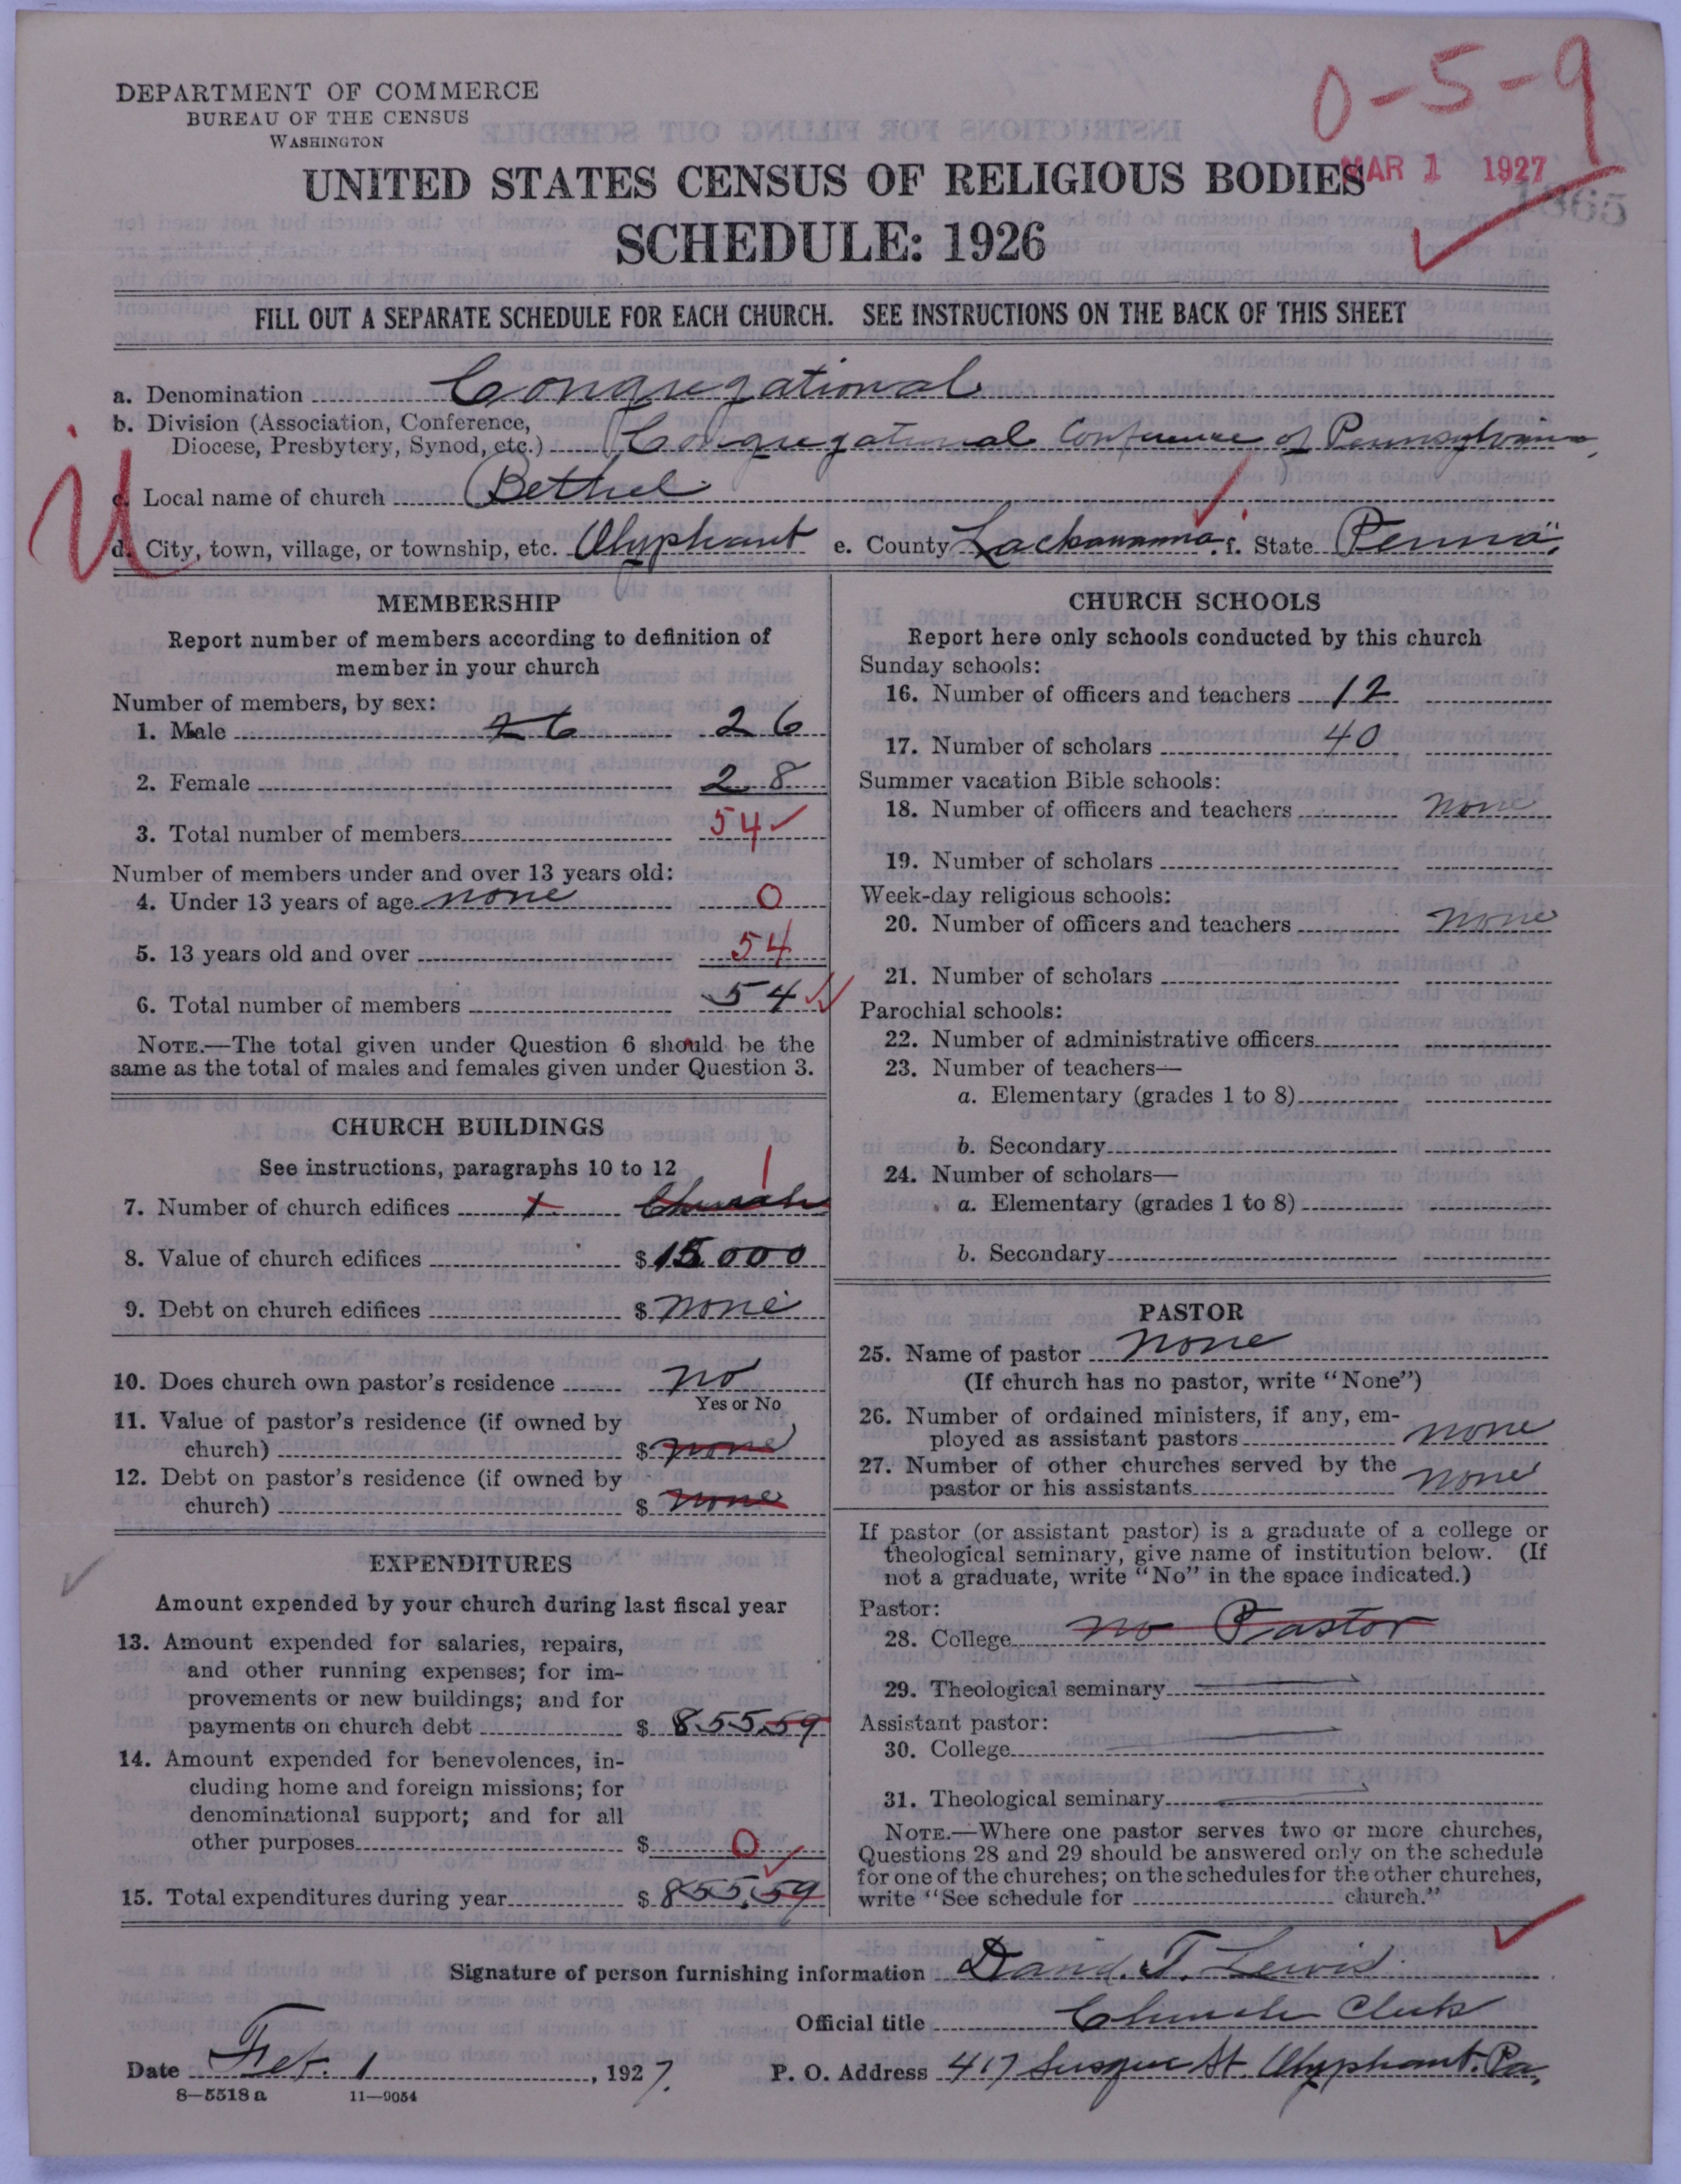 0-5-9
DEPARTMENT OF COMMERCE
BUREAU OF THE CENSUS
WASHINGTON
MAR 1 1927
1865
UNITED STATES CENSUS OF RELIGIOUS BODIES
SCHEDULE: 1926
FILL OUT A SEPARATE SCHEDULE FOR EACH CHURCH. SEE INSTRUCTIONS ON THE BACK OF THIS SHEET
a. Denomination Congregational
b. Division (Association, Conference,
Diocese, Presbytery, Synod, etc.) Congregational Conference of Pennsylvania,
c. Local name of church Bethel
d. City, town, village, or township, etc. Olyphant e. County Lackawanna. f. State Penna.
MEMBERSHIP
Report number of members according to definition of
member in your church
Number of members, by sex:
1. Male 26 26
2. Female 28
3. Total number of members 54
Number of members under and over 13 years old:
4. Under 13 years of age none 0
5. 13 years old and over 54
6. Total number of members 54
NOTE.—The total given under Question 6 should be the
same as the total of males and females given under Question 3.
CHURCH BUILDINGS
See instructions, paragraphs 10 to 12
7. Number of church edifices 1 Church 1
8. Value of church edifices $ 15000
9. Debt on church edifices $ none
10. Does church own pastor's residence no
Yes or No
11. Value of pastor's residence (if owned by
church) $ none
12. Debt on pastor's residence (if owned by
church) $ none
EXPENDITURES
Amount expended by your church during last fiscal year
13. Amount expended for salaries, repairs,
and other running expenses; for im-
provements or new buildings; and for
payments on church debt $ 855.59
14. Amount expended for benevolences, in-
cluding home and foreign missions; for
denominational support; and for all
other purposes $ 0
15. Total expenditures during year $ 855.59
CHURCH SCHOOLS
Report here only schools conducted by this church
Sunday schools:
16. Number of officers and teachers 12
17. Number of scholars 40
Summer vacation Bible schools:
18. Number of officers and teachers none
19. Number of scholars
Week-day religious schools:
20. Number of officers and teachers none
21. Number of scholars
Parochial schools:
22. Number of administrative officers
23. Number of teachers—
a. Elementary (grades 1 to 8)
b. Secondary
24. Number of scholars—
a. Elementary (grades 1 to 8)
b. Secondary
PASTOR
25. Name of pastor none
(If church has no pastor, write "None")
26. Number of ordained ministers, if any, em-
ployed as assistant pastors none
27. Number of other churches served by the
pastor or his assistants none
If pastor (or assistant pastor) is a graduate of a college or
theological seminary, give name of institution below. (If
not a graduate, write "No" in the space indicated.)
Pastor:
28. College no Pastor
29. Theological seminary
Assistant pastor:
30. College
31. Theological seminary
NOTE.—Where one pastor serves two or more churches,
Questions 28 and 29 should be answered only on the schedule
for one of the churches; on the schedules for the other churches,
write "See schedule for church."
Signature of person furnishing information David. T. Lewis
Official title Church Clerk
Date Feb. 1, 1927. P. O. Address 417 Susque St. Olyphant. Pa.
8—5518 a 11—9054